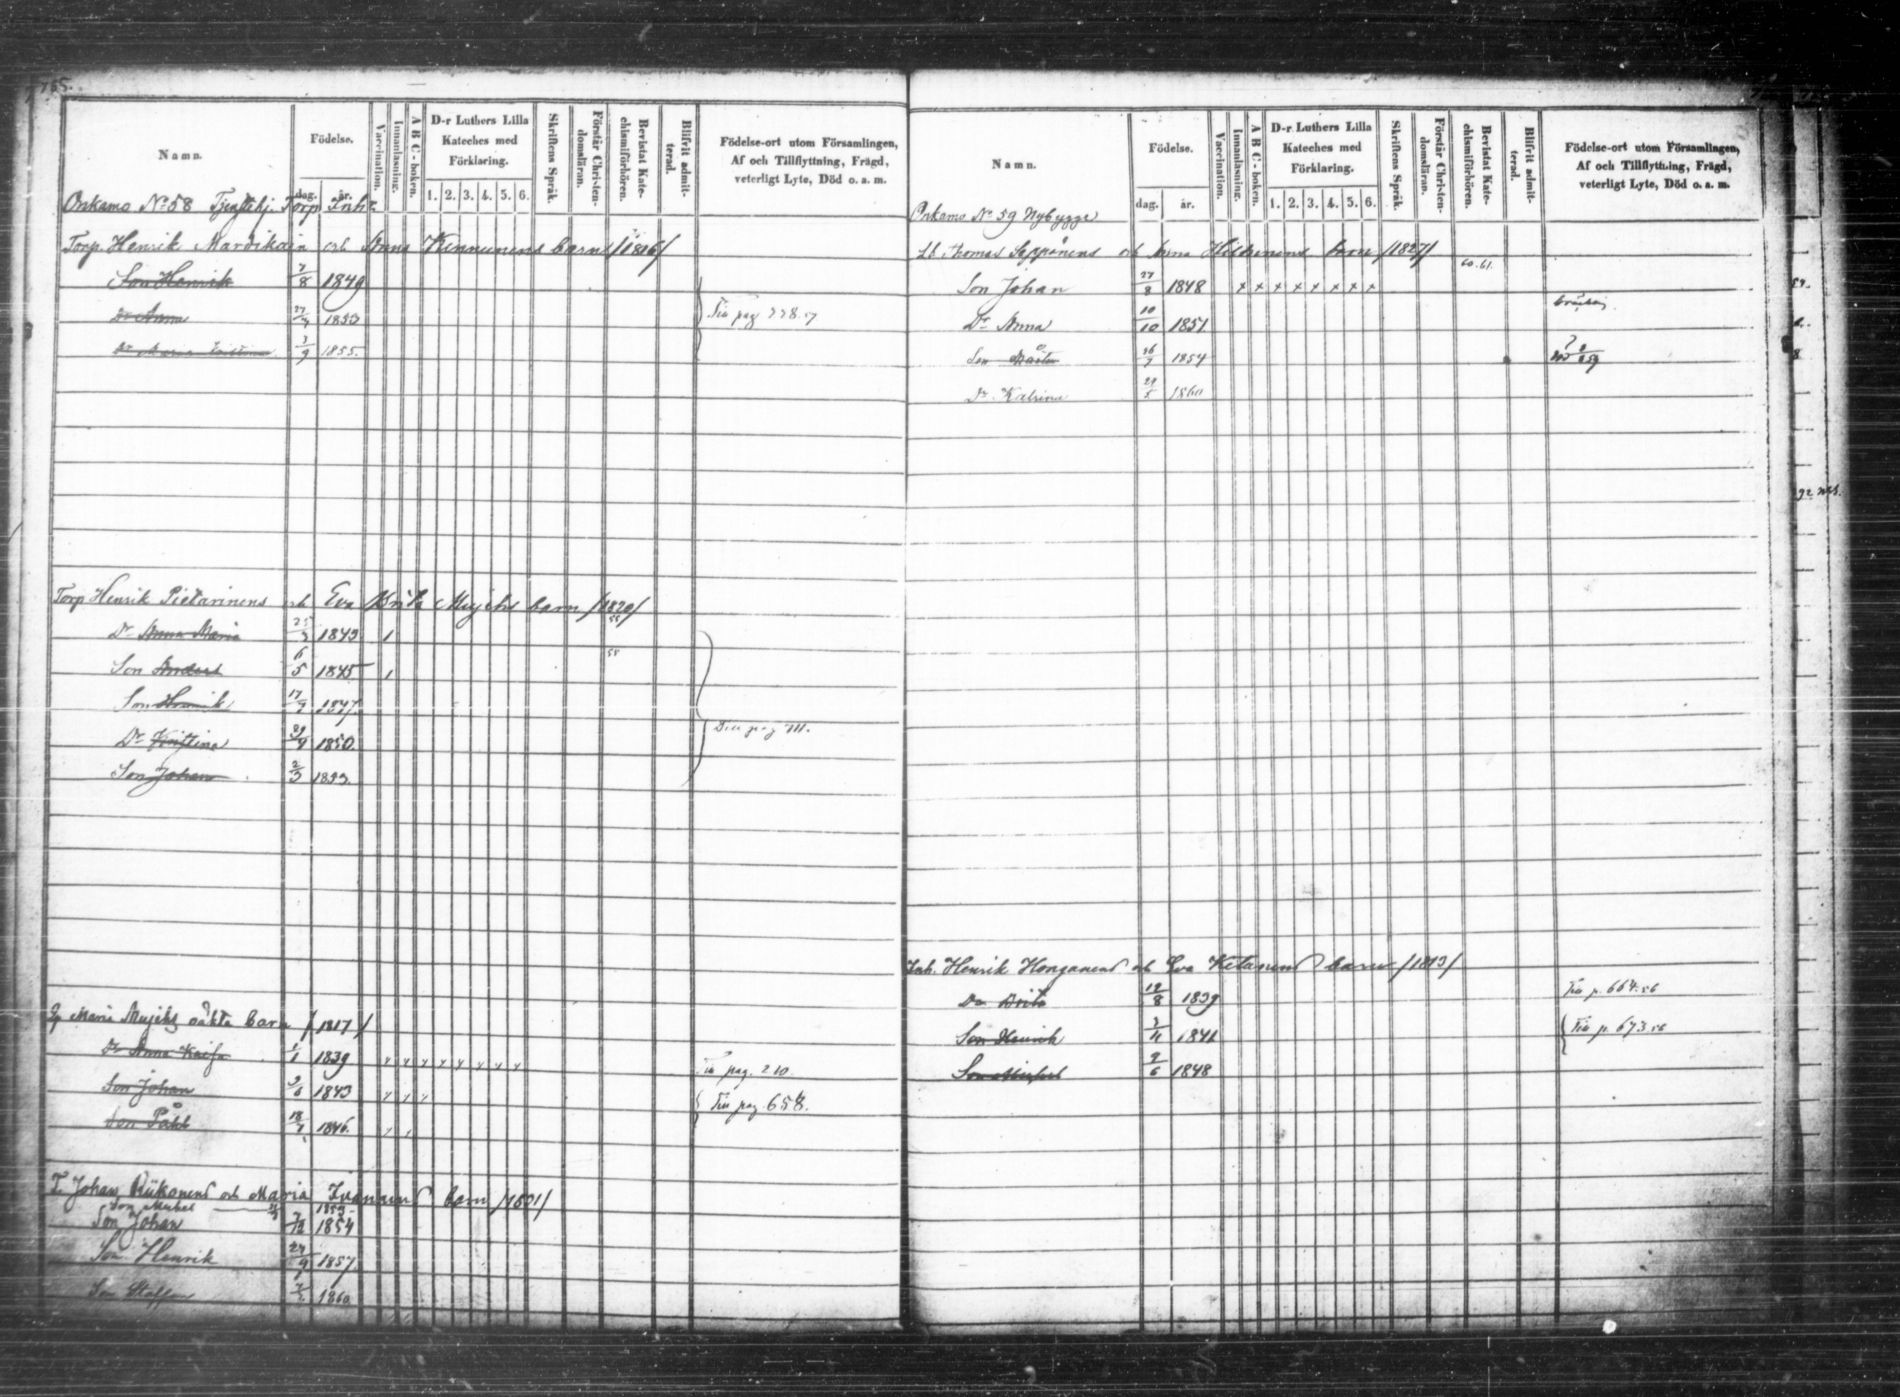 765.
Namn.
Födelse.
dag. år.
Vaccination.
Innanläsning.
A B C-boken.
D-r Luthers Lilla Kateches med Förklaring.
1. 2. 3. 4. 5. 6.
Skriftens Språk.
Förstår Christendomsläran.
Bevistat Katechismiförhören.
Blifvit admitterad.
Födelse-ort utom Församlingen, Af och Tillflyttning, Frägd, veterligt Lyte, Död o. a. m.
Onkamo No 58 Torp Inh.
Torp. Henrik Mardikain och Anna Kinnunens barn /1816/
Son Henrik 7/8 1849
Dr Anna 1853 Till pag 778.57
Dr Maria Kristina 3/9 1855.
Torp Henrik Pietarinens och Eva Brita Mujehs barn /1820/
Dr Anna Maria 25/3 1843 1 58
Son Anders 6/5 1845 1 58
Son Henrik 17/9 1847.
Dr Kristina 29/9 1850. Till pag 711.
Son Johan 2/3 1853.
Maria Mujehs oäkta barn /1817/
Dr Anna Kaisa 1/1 1839 Till pag. 210.
Son Johan 1843 Till pag 658.
Son Påhl 18/1 1846.
T. Johan Riikonens och Maria Ivanains barn /1831/
Son Mikel 1853
Son Johan 7/12 1854
Son Henrik 24/9 1857
Son Staffan 1860
Namn.
Födelse.
dag. år.
Vaccination.
Innanläsning.
A B C-boken.
D-r Luthers Lilla Kateches med Förklaring.
1. 2. 3. 4. 5. 6.
Skriftens Språk.
Förstår Christendomsläran.
Bevistat Katechismiförhören.
Blifvit admitterad.
Födelse-ort utom Församlingen, Af och Tillflyttning, Frägd, veterligt Lyte, Död o. a. m.
Onkamo No 59 Nybygge
Thomas Seppänens och Anna barn /1827/
Son Johan 27/8 1848 x x x x x x x x 60.61.
Dr Anna 10/10 1851
Son Mårten 26/7 1854
Dr Katrina 1860
Inh. Henrik Honganens och Eva Ketanens barn /1813/
Dr Brita 12/8 1839 Till p. 664.56
Son Henrik 3/11 1841 Till p. 673.56
Son Michel 2/6 1848